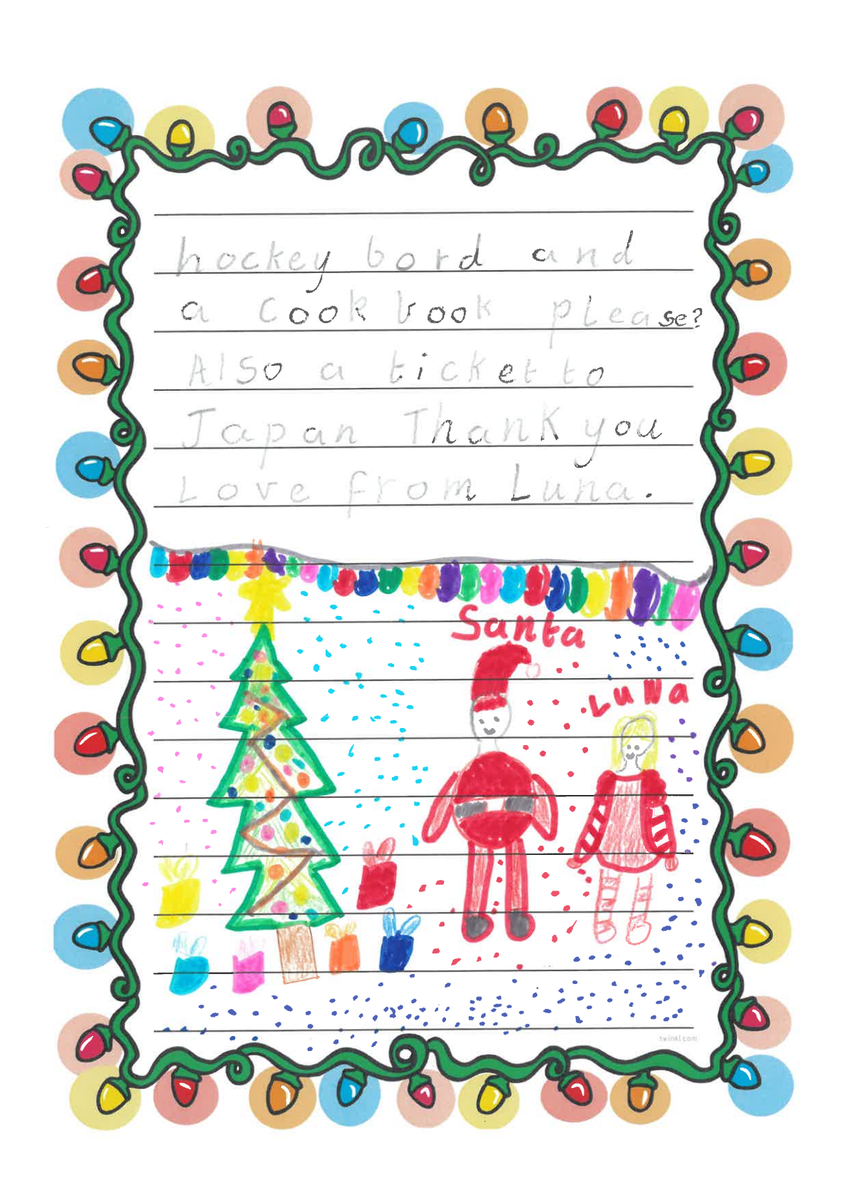 hockey bord and
a cook book please?
Also a ticket to
Japan Thank you
Love from Luna.
Santa
Luna
twinkl.com